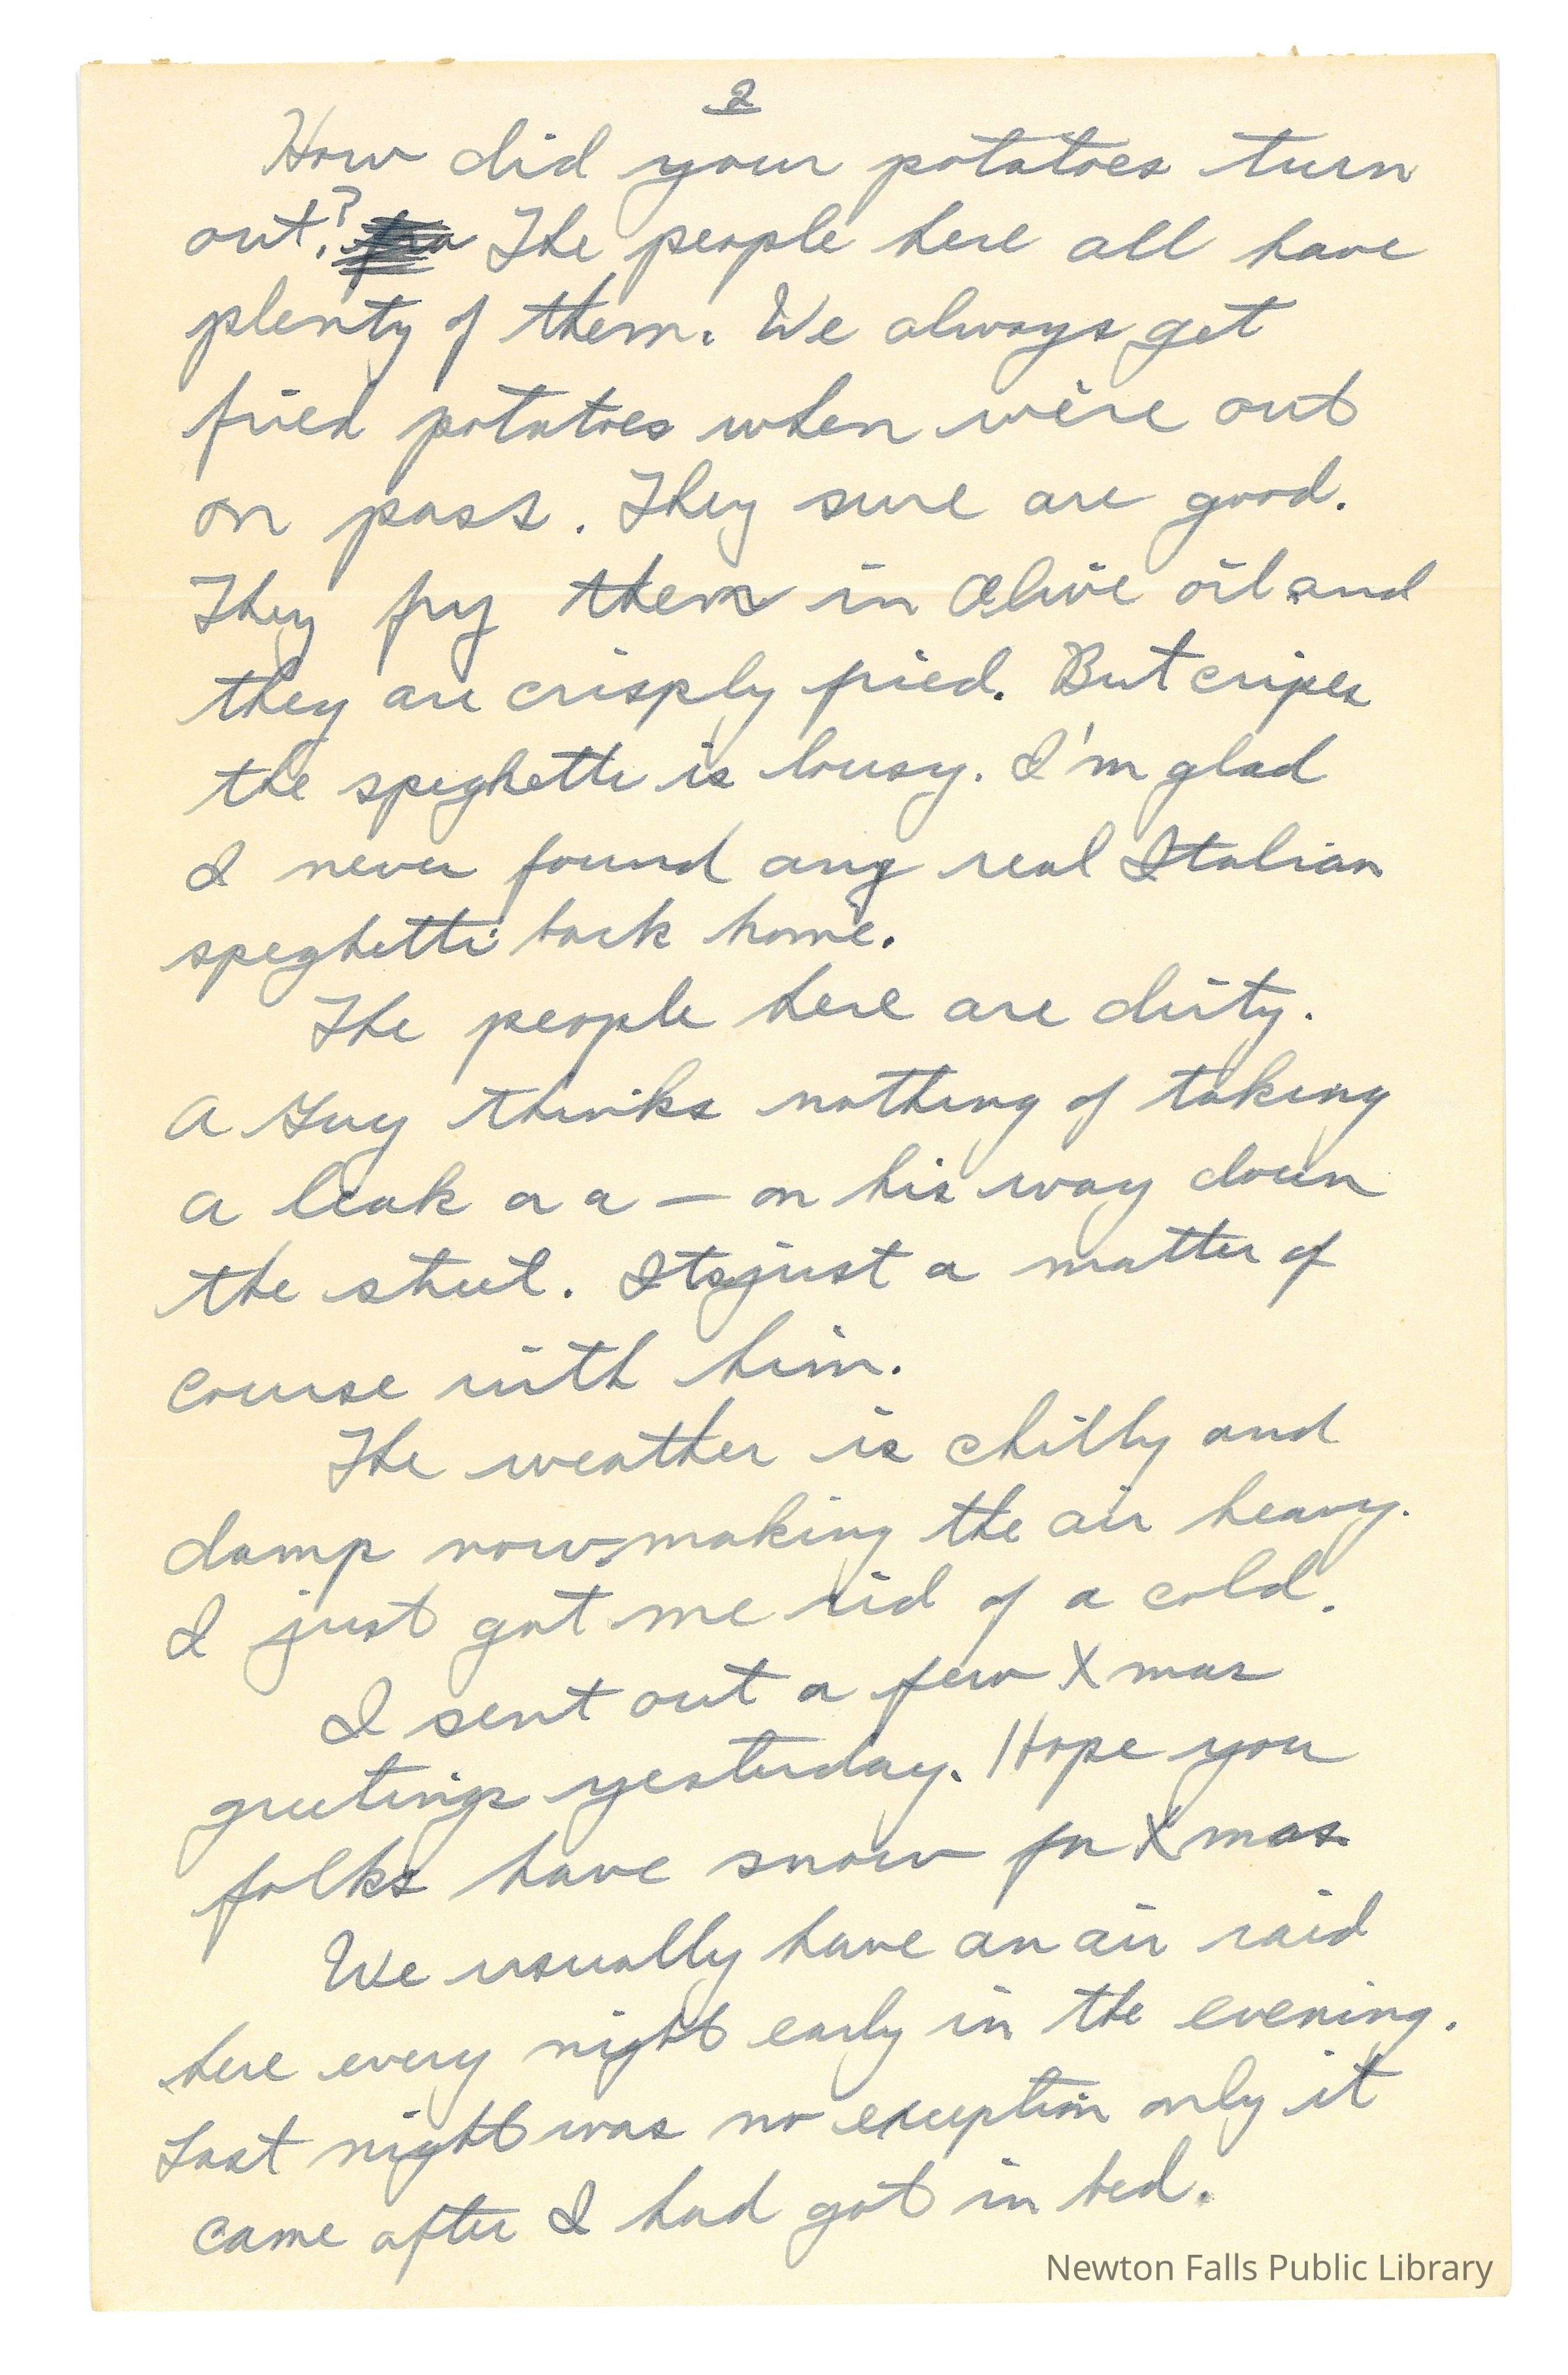 2
How did your potatoes turn
out? The people here all have
plenty of them. We always get
fried potatoes when we're out
on pass. They sure are good.
They fry them in Olive oil and
they are crisply fried. But cripes
the speghetti is lousy. I'm glad
I never found any real Italian
speghetti back home.
The people here are dirty.
A Guy thinks nothing of taking
a leak or a — on his way down
the street. Its just a matter of
course with him.
The weather is chilly and
damp now making the air heavy.
I just got me rid of a cold.
I sent out a few Xmas
greetings yesterday. Hope you
folks have snow for Xmas.
We usually have an air raid
here every night early in the evening.
Last night was no exception only it
came after I had got in bed.
Newton Falls Public Library